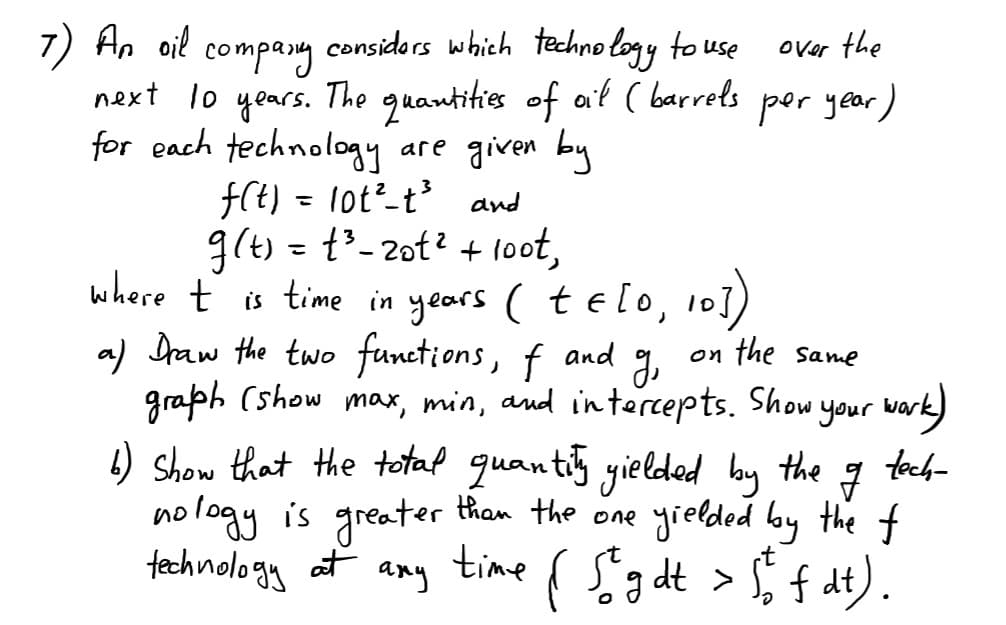 7) An oil company considers which technology to use over the
next 10 years. The quantities of oil (barrels per year)
for each technology are given by
f(t) = 10t²-t³ and
g(t) = t³-20t² + 100t,
where t is time in years ( t ∈ [0, 10])
a) Draw the two functions, f and g, on the same
graph (show max, min, and intercepts. Show your work)
b) Show that the total quantity yielded by the g tech-
nology is greater than the one yielded by the f
technology at any time ( ∫₀ᵗ g dt > ∫₀ᵗ f dt).